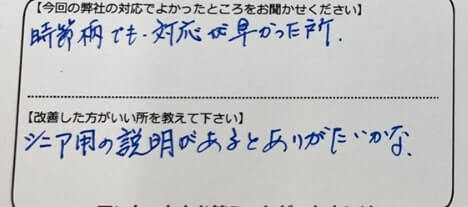 【今回の弊社の対応でよかったところをお聞かせください】
時節柄でも対応が早かった所.
【改善した方がいい所を教えて下さい】
シニア用の説明があるとありがたいかな.